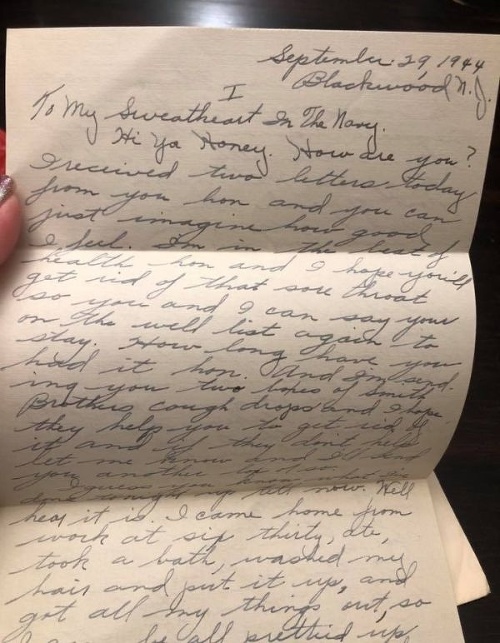 September 29, 1944
Blackwood N.J.
I
To My Sweetheart In The Navy.
Hi Ya Honey. How are you?
I received two letters today
from you hon and you can
just imagine how good
I feel. I'm in the best of
health hon and I hope you'll
get rid of that sore throat
so you and I can say your
on the well list again to
stay. How long have you
had it hon. And I'm send-
ing you two boxes of Smith
Brothers cough drops and I hope
they help you to get rid of
it and if they don't help
let me know and I'll send
you another
I guess you know what I've
done tonight now. Well
hear it is. I came home from
work at six thirty, ate,
took a bath, washed my
hair and put it up, and
got all my things out, so
be all prettied up